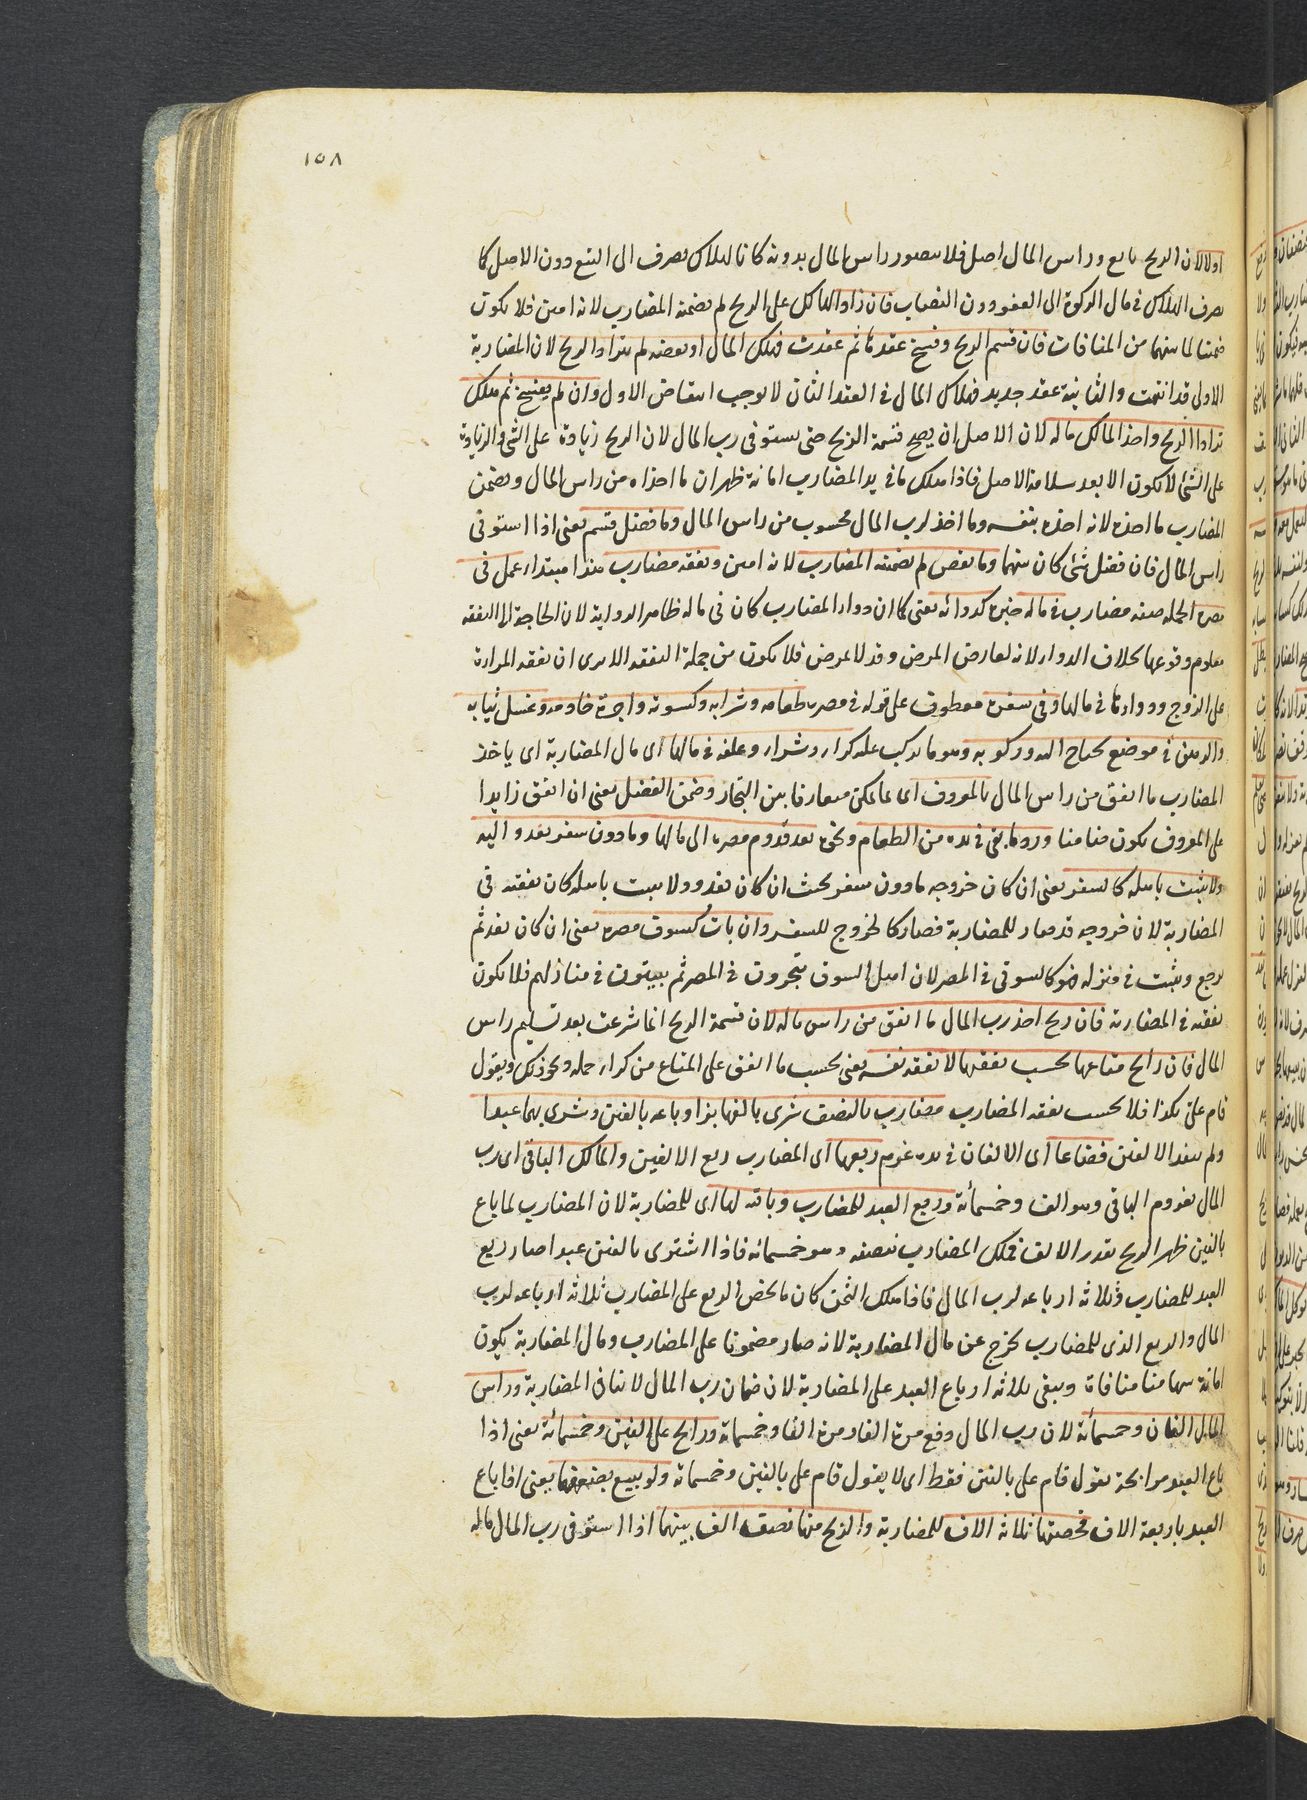 ١٥٨
اولا لان الربح تابع وراس المال اصل فلا يتصور راس المال بدونه كان الهلاك يصرف الى التبع دون الاصل كما
يصرف الهلاك في مال الزكوة الى العفو دون النصاب فان زاد الهالك على الربح لم يضمنه المضارب لانه امين فلا يكون
ضمينا لما بينهما من المنافات فان قسم الربح وفسخ عقدها ثم عقدت فهلك المال او بعضه لم يترادا الربح لان المضاربة
الاولى قد انتهت والثانية عقد جديد فهلاك المال في العقد الثاني لا يوجب انتقاض الاول وان لم يفسخ ثم هلك
ترادا الربح واخذ المالك ماله لان الاصل ان يصح قسمة الربح حتى يستوفى رب المال لان الربح زيادة على الشئ والزيادة
على الشئ لا تكون الا بعد سلامة الاصل فاذا هلك ما في يد المضارب امانة ظهر ان ما اخذاه من راس المال ويضمن
المضارب ما اخذه لانه اخذه بنفسه وما اخذ رب المال محسوب من راس المال وما فضل قسم يعنى اذا استوفى
راس المال فان فضل شئ كان بينهما وما نقص لم يضمنه المضارب لانه امين ونفقة مضارب هذا مبتدا، عمل في
مصره الجملة صفة مضارب في ماله خبره كدوائه يعنى كما ان دواء المضارب كان في ماله ظاهر الرواية لان الحاجة الى النفقة
معلوم وقوعها بخلاف الدواء لانه لعارض المرض وقد لا يمرض فلا يكون من جملة النفقة الا يرى ان نفقة المراة
على الزوج ودواءها في مالها وفى سفره معطوف على قوله في مصره طعامه وشرابه وكسوته واجرة خادمه وغسل ثيابه
والدهن في موضع يحتاج اليه وركوبه وهو ما يركب عليه كراء وشراء وعلفه في مالها اى مال المضاربة اى ياخذ
المضارب ما انفق من راس المال بالمعروف اى بما يكون متعارفا بين التجار وضمن الفضل يعنى ان انفق زايدا
على المعروف يكون ضامنا ورد ما بقى في يده من الطعام ونحوه بعد قدوم مصره الى مالها وما دون سفر يغدو اليه
ولا يبيت باهله كالسفر يعنى ان كان خروجه ما دون سفر بحيث ان كان يغدو ولا يبيت باهله كان نفقته في
المضاربة لان خروجه قد صار للمضاربة فصار كالخروج للسفر وان بات كسوق مصره يعنى ان كان يغد ثم
يرجع ويبيت في منزله فهو كالسوقى في المصر لان اهل السوق يتجرون في المصر ثم يبيتون في منازلهم فلا يكون
نفقته في المضاربة فان ربح اخذ رب المال ما انفق من راس ماله لان قسمة الربح انما شرعت بعد تسليم راس
المال فان رابح متاعها يحسب نفقتها لا نفقة نفسه يعنى يحسب ما انفق على المتاع من كراء حمله ونحو ذلك ويقول
قام على بكذا فلا يحسب نفقة المضارب مضارب بالنصف شرى بالفها بزا وباعه بالفين وشرى بهما عبدا
ولم ينقد الالفين فضاعا اى الالفان في يده غرم ربعهما اى المضارب ربع الالفين والمالك الباقى اى رب
المال يغروم الباقى وهو الف وخمسمائة وربع العبد للمضارب وباقيه لها اى للمضاربة لان المضارب لما باع
بالفين ظهر الربح بقدر الالف فملك المضارب نصفه وهو خمسمائه فاذا اشترى بالفين عبدا صار ربع
العبد للمضارب وثلاثة ارباعه لرب المال فاذا هلك الثمن كان ما يخص الربع على المضارب ثلاثة ارباعه لرب
المال والربع الذى للمضارب يخرج عن مال المضاربة لانه صار مضمونا على المضارب ومال المضاربة يكون
امانة بينهما منافاة ويبقى ثلاثة ارباع العبد على المضاربة لان ضمان رب المال لا ينافى المضاربة وراس
المال الفان وخمسمائة لان رب المال دفع مرة الفا ومرة الفا وخمسمائة ورابح على الفين وخمسمائة يعنى اذا
باع العبد مرابحة يقول قام على بالفين فقط اى لا يقول قام على بالفين وخمسمائة ولو بيع بضعفهما يعنى اذا باع
العبد باربعة الاف فحصتها ثلاثة الاف للمضاربة والربح منها نصف الف بينهما اذا استوفى رب المال ماله